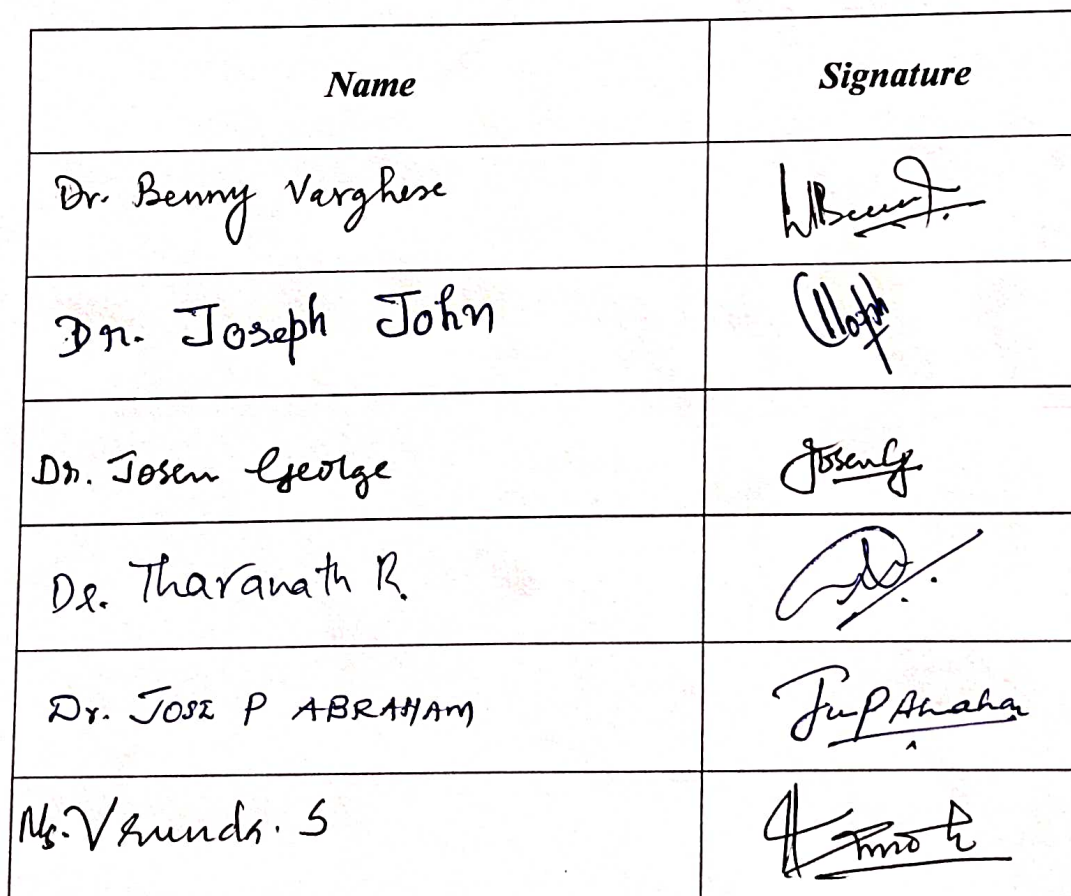 Name Signature
Dr. Benny Varghese
Dr. Joseph John
Dr. Josen George Josen G
Dr. Tharanath R.
Dr. JOSE P ABRAHAM
Ms. Vrunda. S